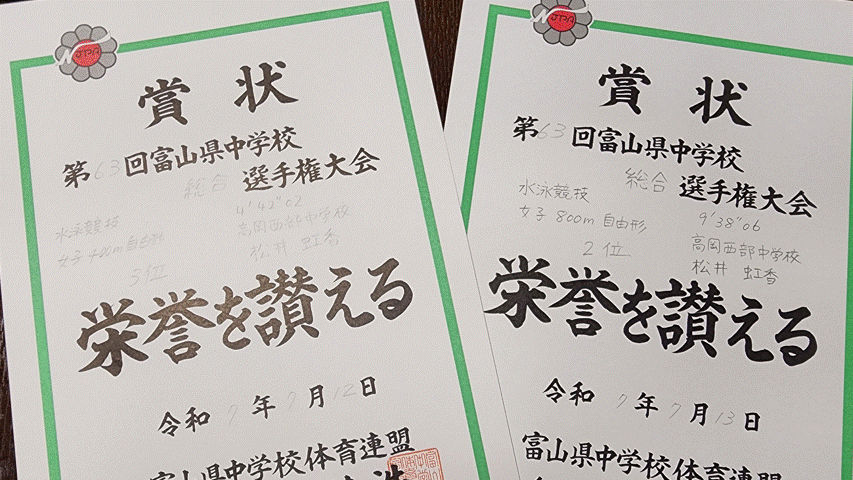 JPA
賞状
第63回富山県中学校
総合 選手権大会
水泳競技
女子 400m自由形
3位
4'42"02
高岡西部中学校
松井 虹香
栄誉を讃える
令和7年7月12日
富山県中学校体育連盟
JPA
賞状
第63回富山県中学校
総合 選手権大会
水泳競技
女子 800m 自由形
2位
9'38"06
高岡西部中学校
松井 虹香
栄誉を讃える
令和7年7月13日
富山県中学校体育連盟